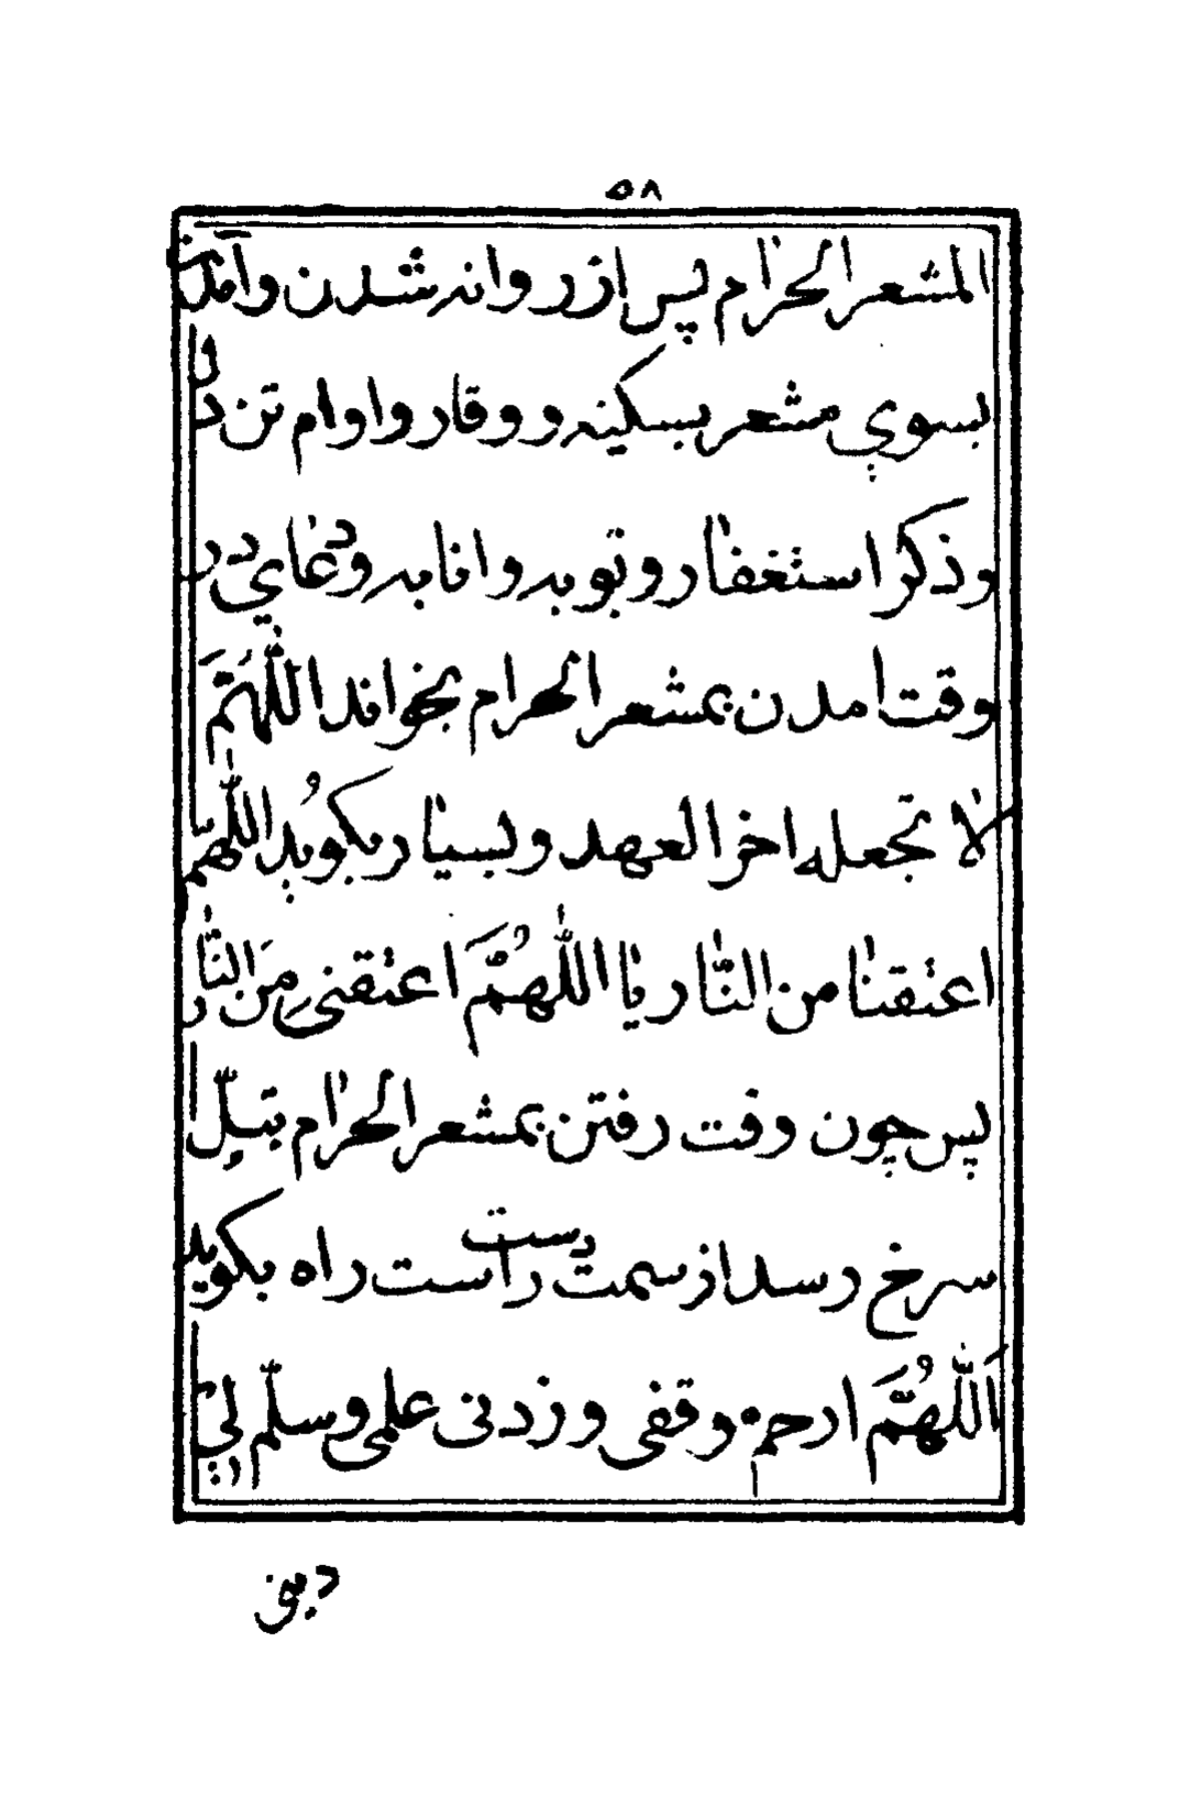 ۵۸
المشعر الحرام پس از روانه شدن و آمدن
بسوي مشعر بسكينه و وقار و اوام تن دل
و ذكر استغفار و توبه و انابه و دعاي در
وقت امدن بمشعر الحرام بخواند اللهمَّ
لا تجعله اخر العهد و بسيار بگوُيد اللّهمّ
اعتقنا من النّار يا اللّهُمَّ اعتقني مِنَ النّار
پس چون وقت رفتن بمشعر الحرام بتلّ
سرخ رسد از سمت دست راست راه بگويد
اَللّهُمَّ ارحم وقفي و زدني علمي و سلّم لي
ديني